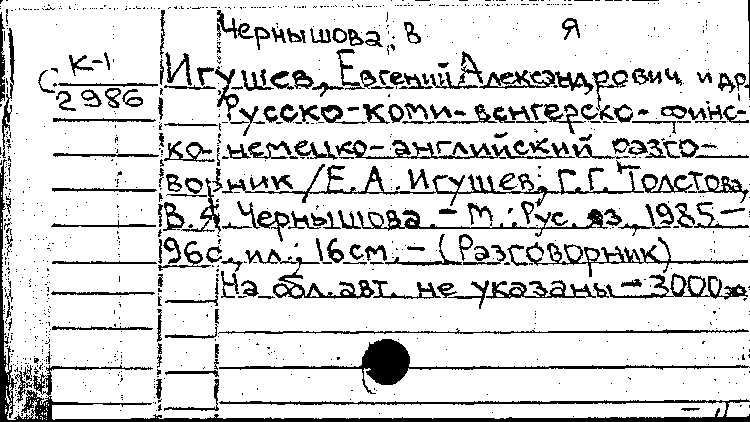 Чернышова, В Я
К-1
2986
Игушев, Евгений Александрович и др
Русско-коми-венгерско-финс-
ко-немецко-английский разго-
ворник / Е. А. Игушев, Г. Г. Толстова,
В. Я. Чернышова. - М.: Рус. яз., 1985. -
96с., ил.; 16 см. - (Разговорник)
На обл. авт. не указаны - 3000